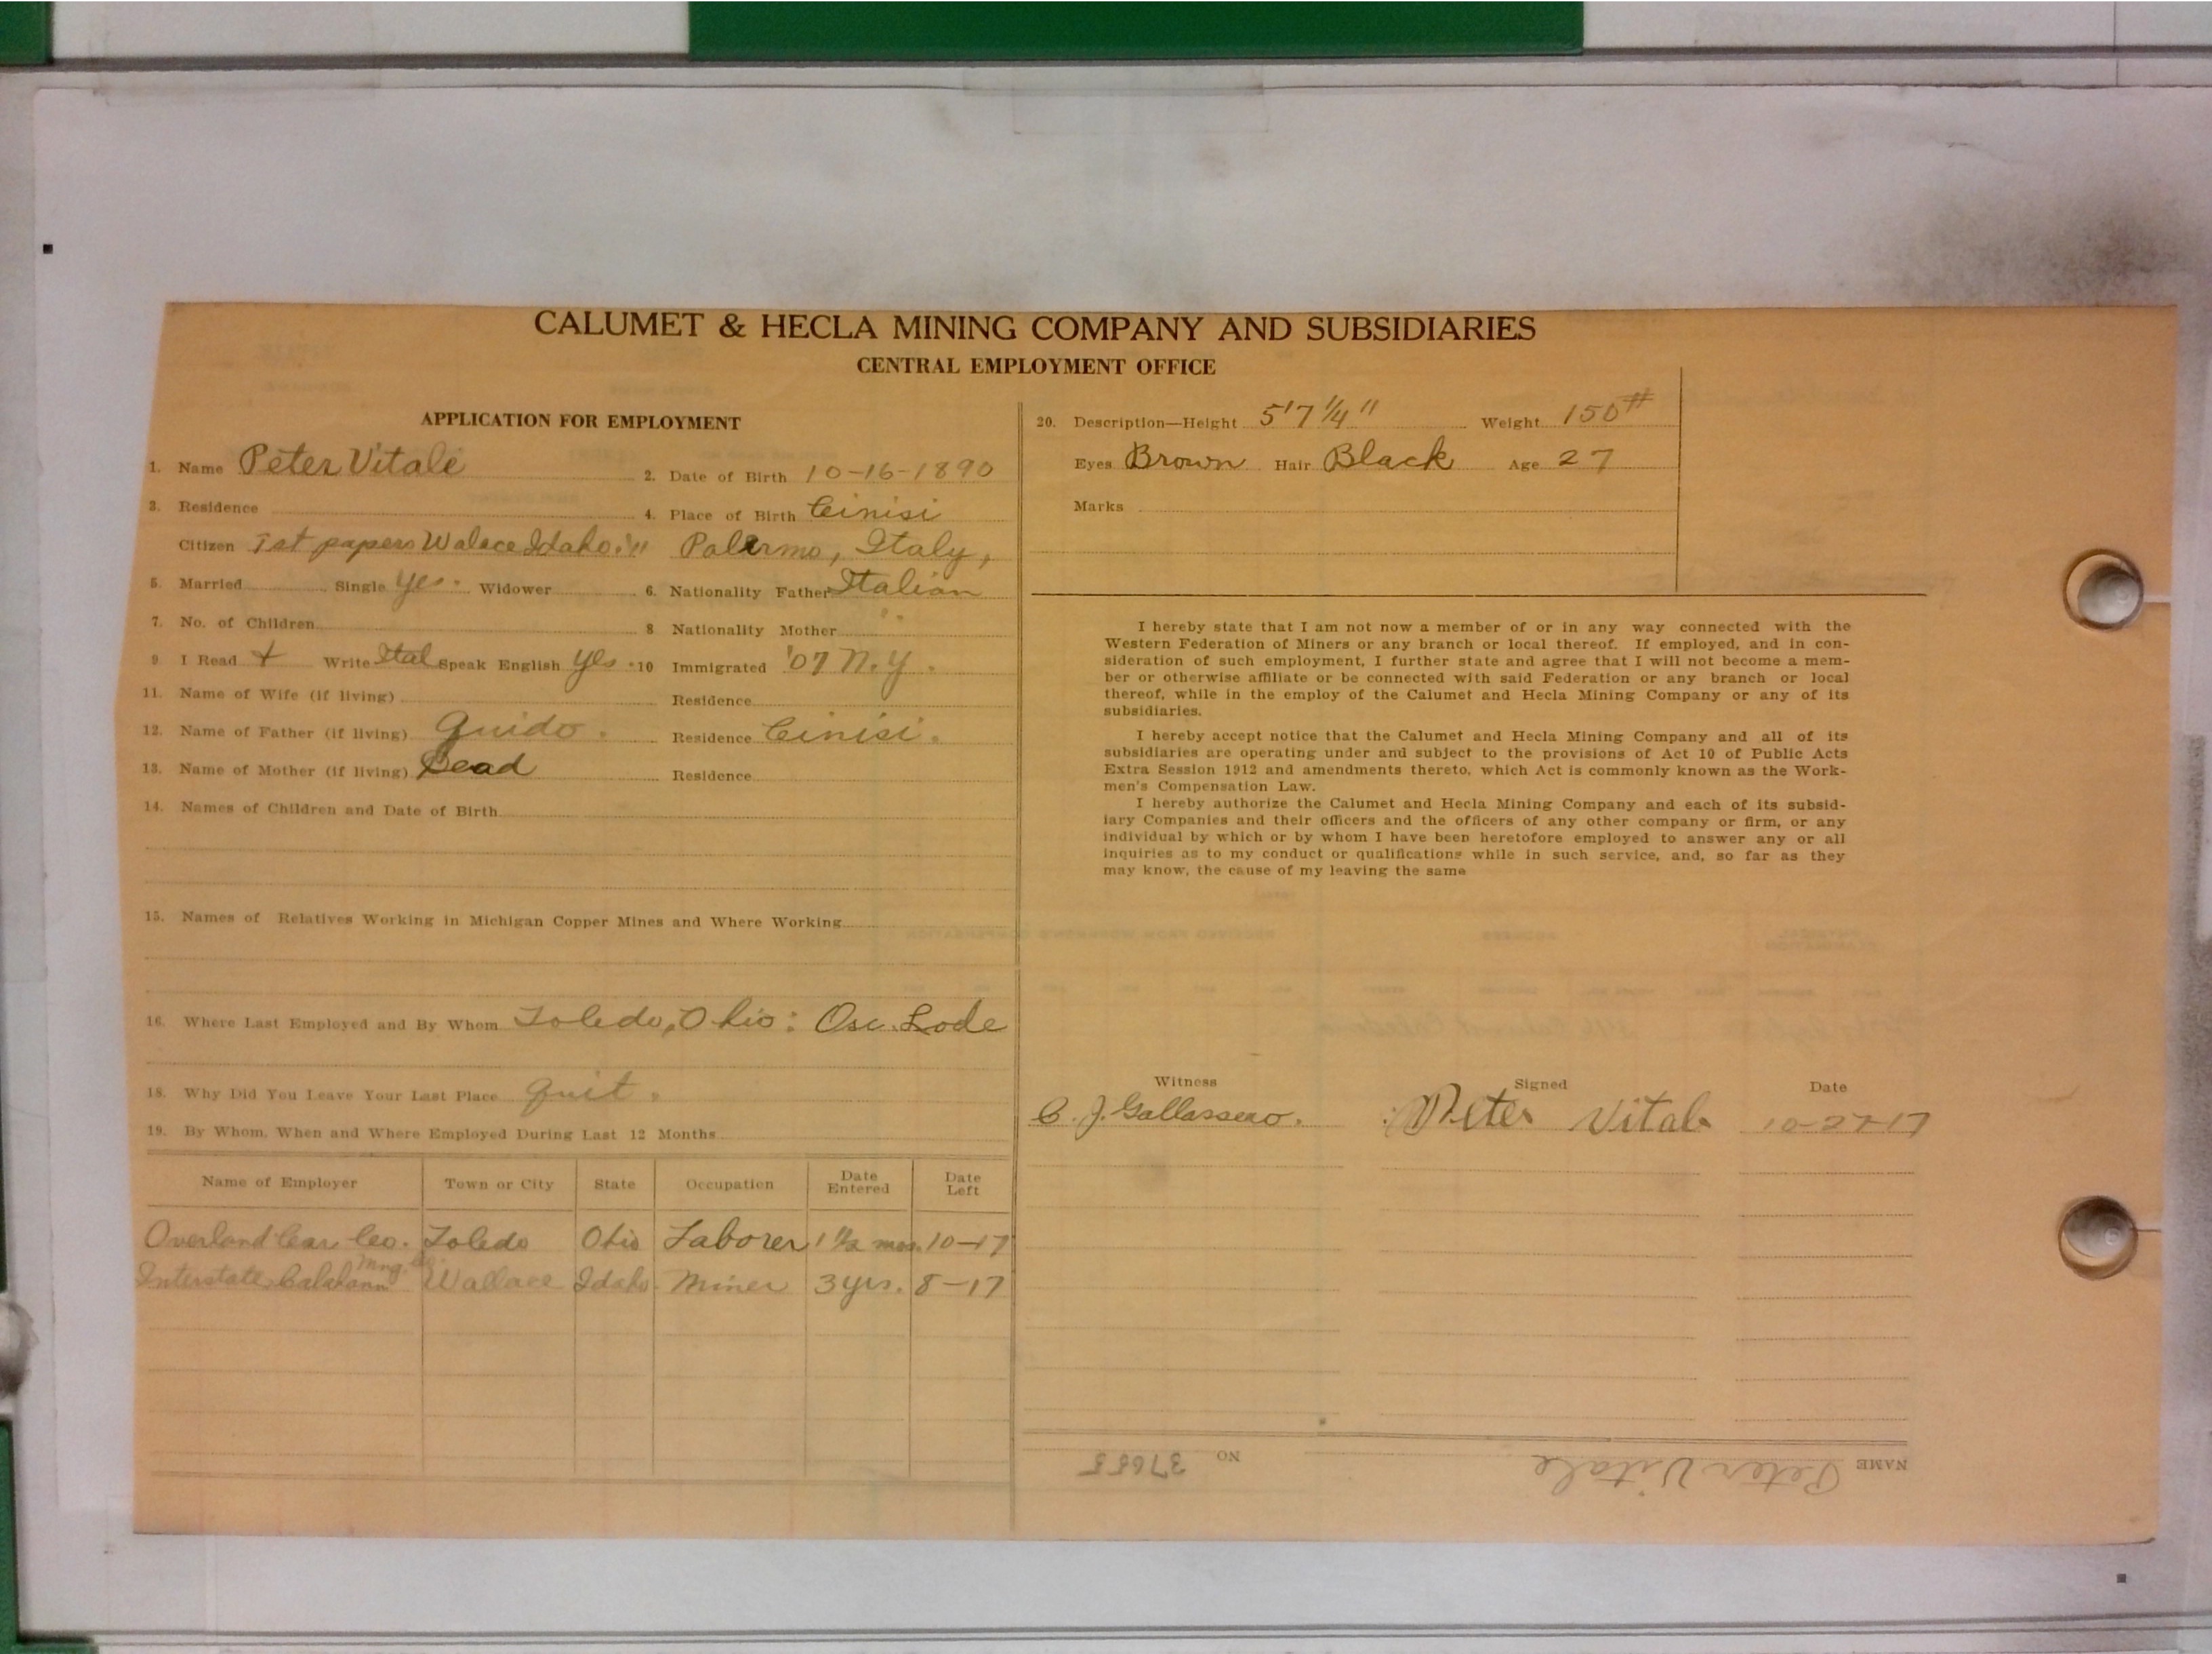 CALUMET & HECLA MINING COMPANY AND SUBSIDIARIES
CENTRAL EMPLOYMENT OFFICE
APPLICATION FOR EMPLOYMENT
1. Name Peter Vitale 2. Date of Birth 10-16-1890
3. Residence 4. Place of Birth Cinisi
Citizen 1st papers Walace Idaho Palermo, Italy,
5. Married Single Yes. Widower 6. Nationality Father Italian
7. No. of Children 8 Nationality Mother " "
9 I Read + Write Ital Speak English Yes. 10 Immigrated '07 N.Y.
11. Name of Wife (if living) Residence
12. Name of Father (if living) Guido. Residence Cinisi.
13. Name of Mother (if living) Dead Residence
14. Names of Children and Date of Birth
15. Names of Relatives Working in Michigan Copper Mines and Where Working
16. Where Last Employed and By Whom Toledo, Ohio: Osc. Lode
18. Why Did You Leave Your Last Place quit.
19. By Whom, When and Where Employed During Last 12 Months
Name of Employer Town or City State Occupation Date Entered Date Left
Overland Car Co. Toledo Ohio Laborer 1 1/2 mos. 10-17
Interstate Calahann Mng. Co. Wallace Idaho Miner 3 yrs. 8-17
20. Description—Height 5'7 1/4" Weight 150#
Eyes Brown Hair Black Age 27
Marks
I hereby state that I am not now a member of or in any way connected with the
Western Federation of Miners or any branch or local thereof. If employed, and in con-
sideration of such employment, I further state and agree that I will not become a mem-
ber or otherwise affiliate or be connected with said Federation or any branch or local
thereof, while in the employ of the Calumet and Hecla Mining Company or any of its
subsidiaries.
I hereby accept notice that the Calumet and Hecla Mining Company and all of its
subsidiaries are operating under and subject to the provisions of Act 10 of Public Acts
Extra Session 1912 and amendments thereto, which Act is commonly known as the Work-
men's Compensation Law.
I hereby authorize the Calumet and Hecla Mining Company and each of its subsid-
iary Companies and their officers and the officers of any other company or firm, or any
individual by which or by whom I have been heretofore employed to answer any or all
inquiries as to my conduct or qualifications while in such service, and, so far as they
may know, the cause of my leaving the same
Witness Signed Date
C. J. Gallasseao. Peter Vitale 10-27-17
NAME Peter Vitale NO 37653